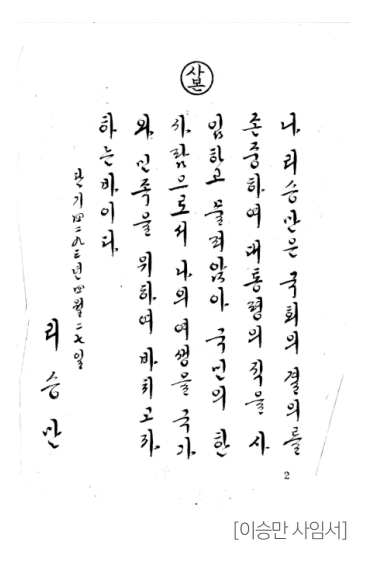 사본
나 리승만은 국회의 결의를
존중하여 대통령의 직을 사
임하고 물러앉아 국민의 한
사람으로서 나의 여생을 국가
와 민족을 위하여 바치고자
하는바이다.
단기四二九三년四월二七일
리승만
2
[이승만 사임서]